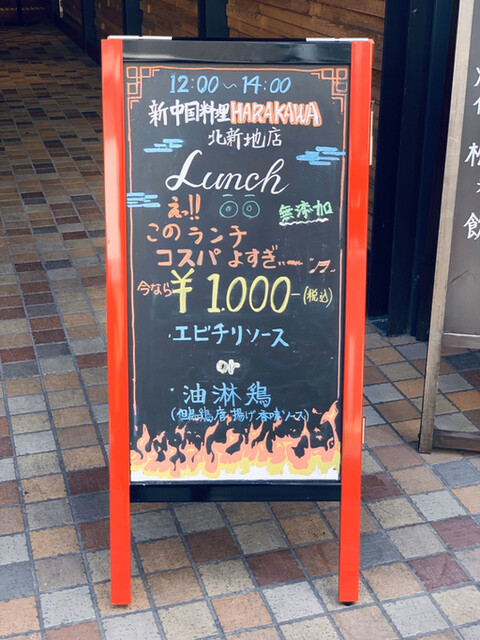 12:00〜14:00
新中国料理 HARAKAWA
北新地店
Lunch
えっ!!
無添加
このランチ
コスパ よすぎ…〜♬
今なら ¥1.000-(税込)
・エビチリソース
or
・油淋鶏
(但馬鶏唐揚げ香味ソース)
飲